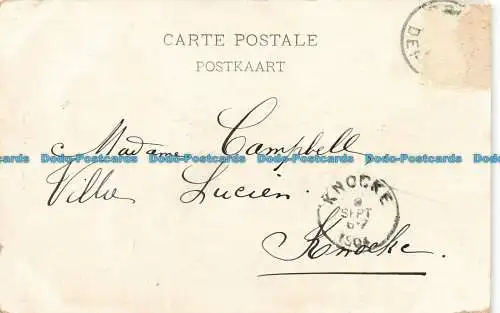 CARTE POSTALE
POSTKAART
DE
Madame Campbell
Dodo-Postcards Dodo-Postcards Dodo-Postcards Dodo-Postcards
Villa Lucien.
KNOCKE
8
SEPT
6-7
1904
Knocke.